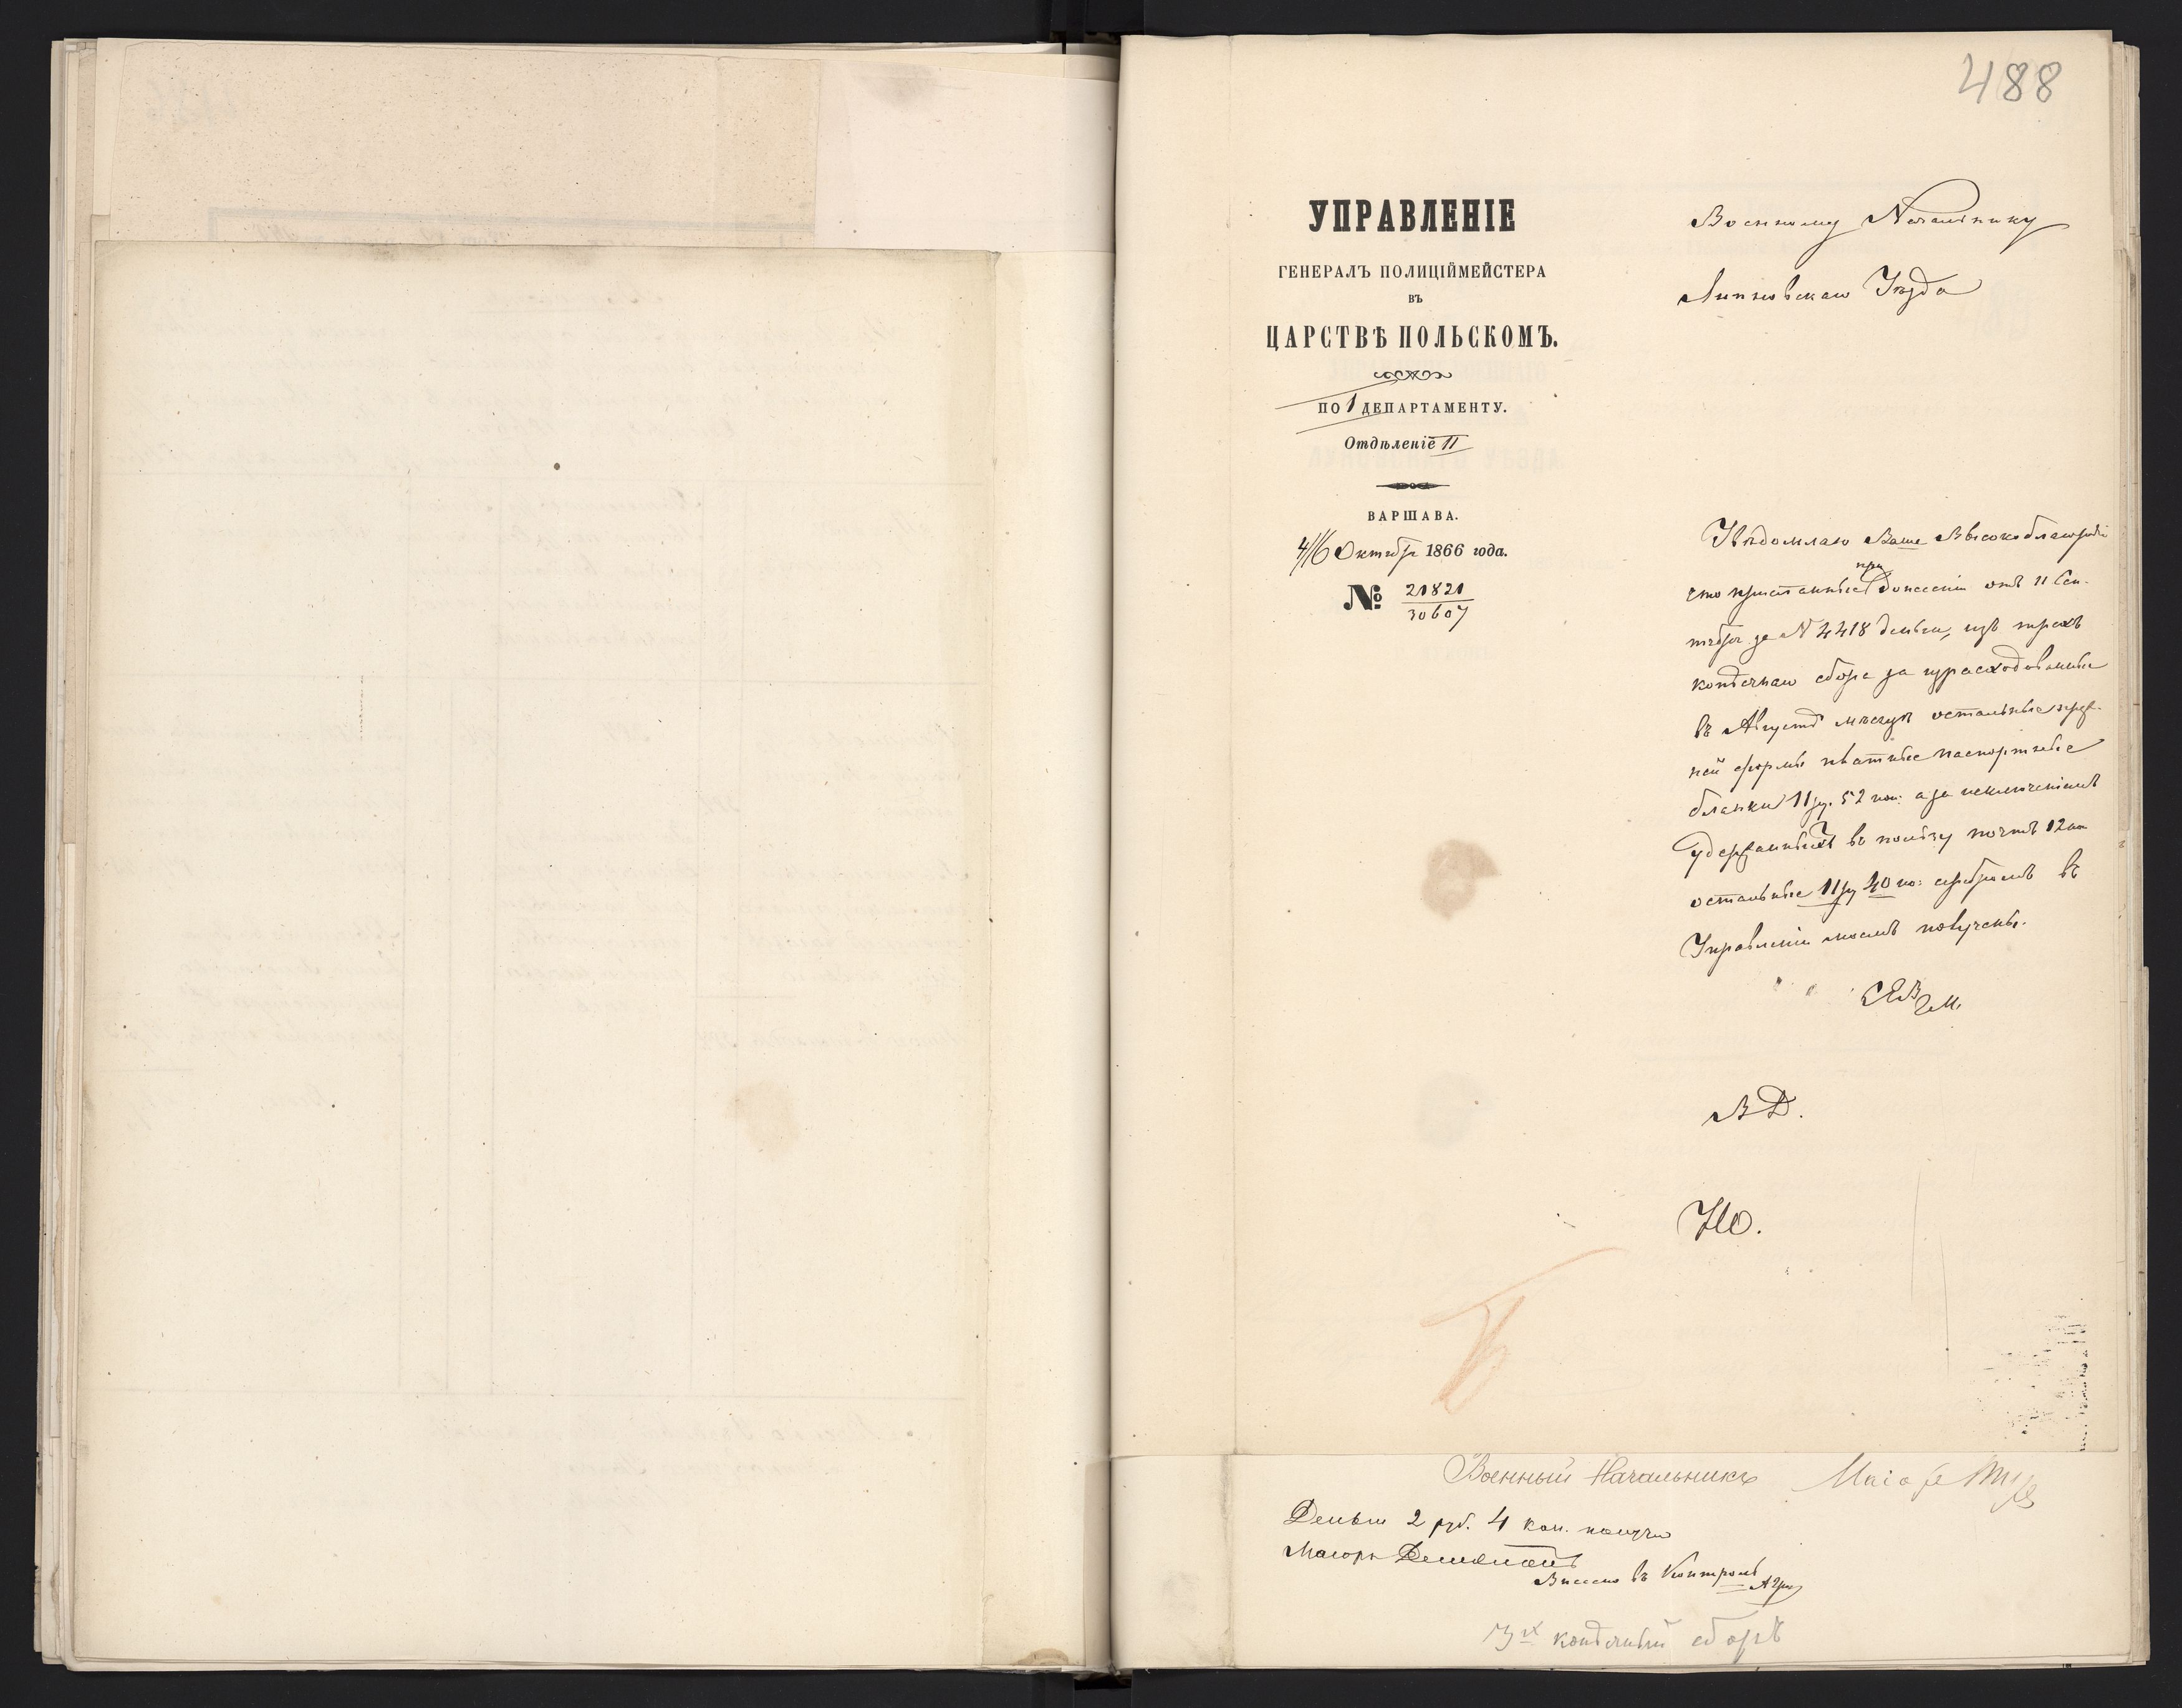 488
УПРАВЛЕНІЕ
ГЕНЕРАЛЪ ПОЛИЦІЙМЕЙСТЕРА
ВЪ
ЦАРСТВѢ ПОЛЬСКОМЪ.
ПО 1 ДЕПАРТАМЕНТУ.
Отдѣленіе II
ВАРШАВА.
4/16 Октября 1866 года.
№ 21821
30607
Военному Начальнику
Липновскаго Уѣзда
Увѣдомляю Ваше Высокоблагородіе
что присланные при донесеніи отъ 11 Сен-
тября за N 4418 деньги, изъ трехъ
копѣечнаго сбора за израсходованные
въ Августѣ мѣсяцѣ остальные преж-
ней формы платные паспортные
бланки 11 ру. 52 коп: а за исключеніемъ
удержанныхъ въ пользу почтъ 12 коп
остальные 11 ру 40 ко: серебромъ въ
Управленіи моемъ получены.
В Д.
Военный Начальникъ Маіоръ
Деньги 2 руб. 4 коп. получилъ
Маіоръ
Внесено въ Контроль
3х копѣечный сборъ